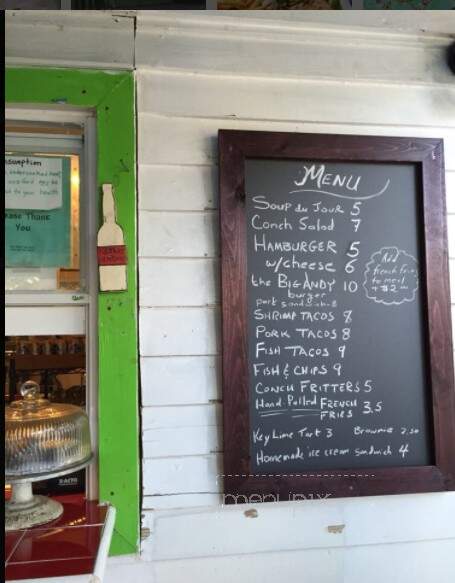 MENU
SOUP du JOUR 5
Conch Salad 7
HAMBURGER 5
w/cheese 6
the BIG ANDY 10
burger
pork sandwich 8
SHRIMP TACOS 8
PORK TACOS 8
FISH TACOS 9
FISH & CHIPS 9
CONCH FRITTERS 5
Hand-Pulled FRENCH
FRIES 3.5
Key Lime Tart 3 Brownie 2.50
Homemade ice cream sandwich 4
Add
french fries
to meal
+$2
Thank
You
menupix